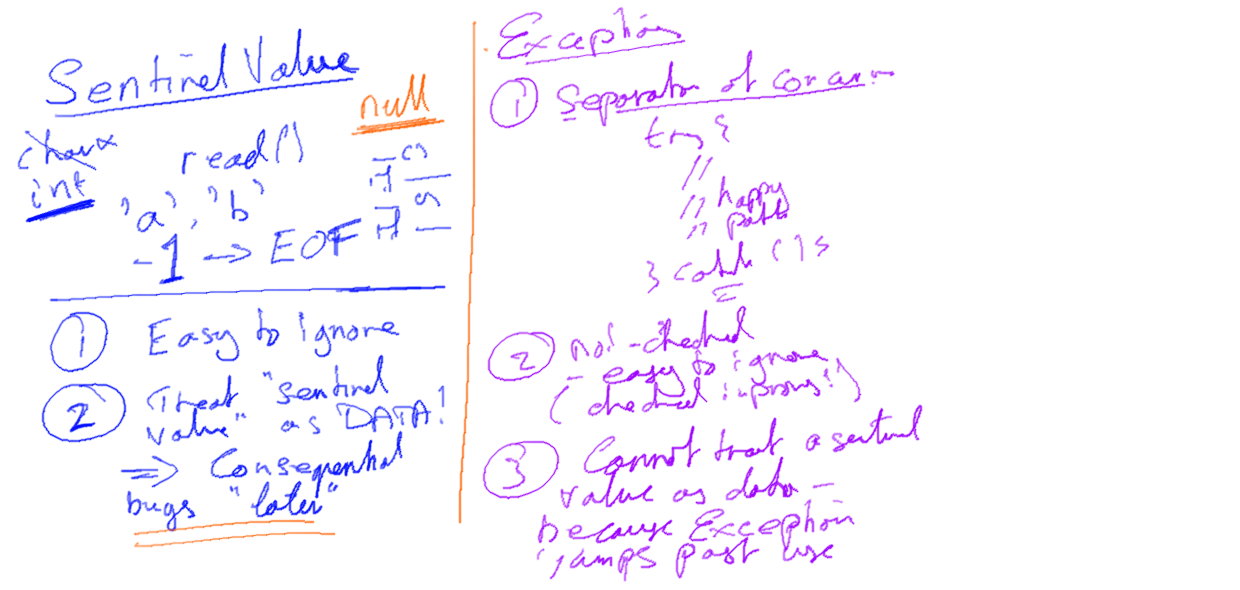 Sentinel Value
null
char
read()
int
'a', 'b'
-1 → EOF
① Easy to ignore
② Treat "sentinel
value" as DATA!
⇒ Consequential
bugs "later"
Exception
① Separation of concerns
try {
//
// happy
// path
} catch () {
② not-checked
- easy to ignore
(checked improves!)
③ Cannot treat a sentinel
value as data -
because Exception
jumps past use